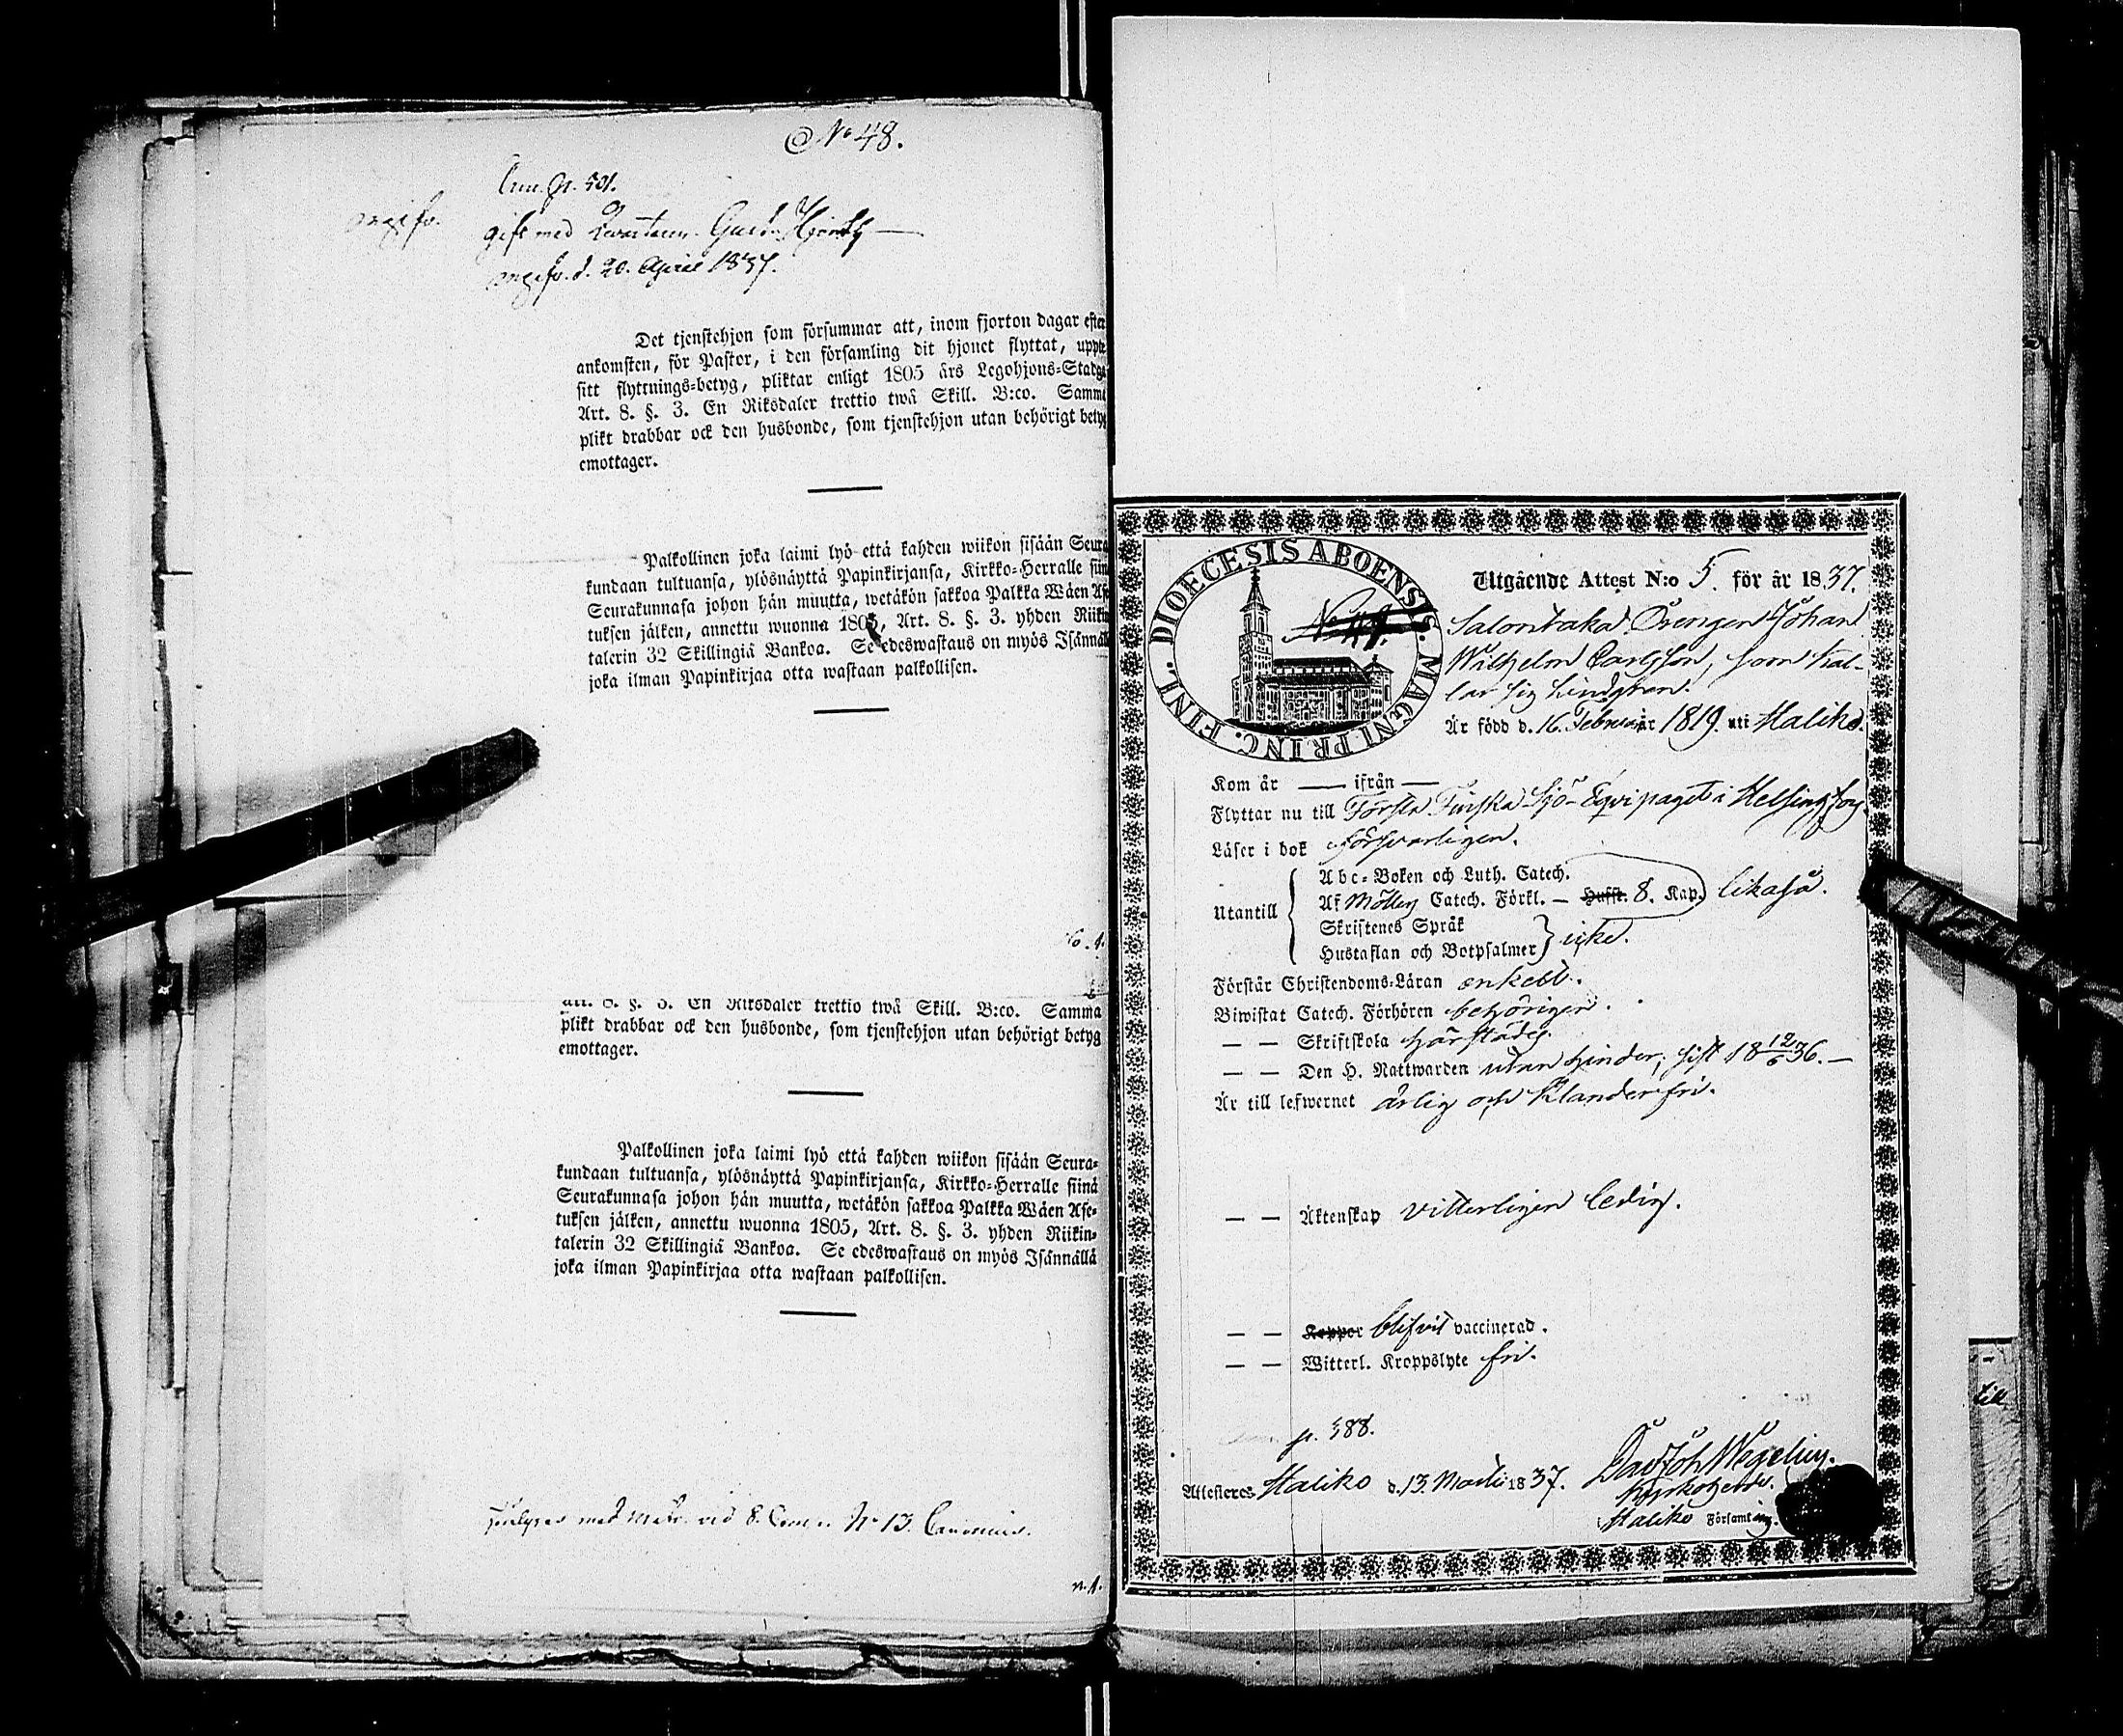 No 48.
p. 501.
gift med
d. 20. April 1837.
Det tjenstehjon som försummar att, inom fjorton dagar efter
ankomsten, för Pastor, i den församling dit hjonet flyttat, uppte
sitt flyttnings=betyg, pliktar enligt 1805 års Legohjons=Stadga
Art. 8. §. 3. En Riksdaler trettio twå Skill. B:co. Samma
plikt drabbar ock den husbonde, som tjenstehjon utan behörigt betyg
emottager.
Palkollinen joka laimi lyö että kahden wiikon sisään Seura
kundaan tultuansa, ylösnäyttä Papinkirjansa, Kirkko=Herralle siin
Seurakunnasa johon hän muutta, wetäkön sakkoa Palkka Wäen Ase
tuksen jälken, annettu wuonna 1805, Art. 8. §. 3. yhden Riikin
talerin 32 Skillingiä Bankoa. Se edeswastaus on myös Isännäll
joka ilman Papinkirjaa otta wastaan palkollisen.
Art. 8. §. 3. En Riksdaler trettio twå Skill. B:co. Samma
plikt drabbar ock den husbonde, som tjenstehjon utan behörigt betyg
emottager.
Palkollinen joka laimi lyö että kahden wiikon sisään Seura=
kundaan tultuansa, ylösnäyttä Papinkirjansa, Kirkko=Herralle siinä
Seurakunnasa johon hän muutta, wetäkön sakkoa Palkka Wäen Ase=
tuksen jälken, annettu wuonna 1805, Art. 8. §. 3. yhden Riikin=
talerin 32 Skillingiä Bankoa. Se edeswastaus on myös Isännällä
joka ilman Papinkirjaa otta wastaan palkollisen.
med vid No 13.
n. 1.
DIOECESIS ABOENSIS. MAGNI PRINC. FINL.
Utgående Attest N:o 5. för år 1837.
Drengen Johan
Wilhelm Carlsson, som kal-
lar sig Lindgren.
Är född d. 16. Februarii 1819. uti Haliko.
Kom år — ifrån —
Flyttar nu till Första Finska Sjö-Equipaget i Helsingfors.
Läser i bok försvarligen.
Utantill
Abc=Boken och Luth. Catech.
Af Catech. Förkl. — Husft. 8. Kap. likaså.
Skriftenes Språk
Hustaflan och Botpsalmer icke.
Förstår Christendoms=Läran enkelt.
Biwistat Catech. Förhören behörigen.
— — Skriftskola härstädes.
— — Den H. Nattwarden utan hinder, sist 18 12/6 36. —
Är till lefwernet ärlig och klanderfri.
— — Äktenskap vitterligen ledig.
— — Koppor blifvit vaccinerad.
— — Witterl. Kroppslyte fri.
p. 588.
Attesteres Haliko d. 13. Martii 1837.
Dav Joh Wegelius.
Kyrkoherde.
i Haliko Församling.
till